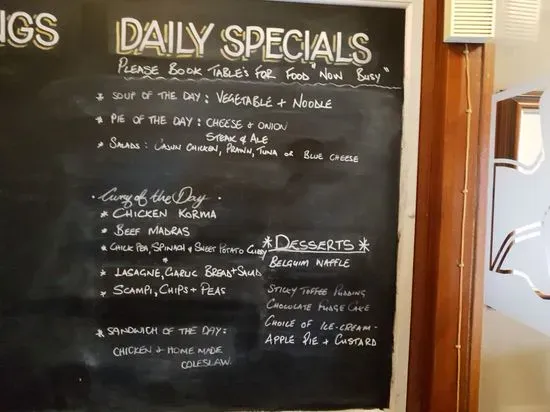 NGS
DAILY SPECIALS
PLEASE BOOK TABLE'S FOR FOOD "NOW BUSY"
* SOUP OF THE DAY : VEGETABLE + NOODLE
* PIE OF THE DAY : CHEESE & ONION
STEAK & ALE
* SALADS : CAJUN CHICKEN, PRAWN, TUNA OR BLUE CHEESE
· Curry of the Day ·
* CHICKEN KORMA
* BEEF MADRAS
* CHICK PEA, SPINACH & SWEET POTATO CURRY
*
* LASAGNE, GARLIC BREAD + SALAD
* SCAMPI, CHIPS + PEAS
* SANDWICH OF THE DAY :
CHICKEN & HOME MADE
COLESLAW.
* DESSERTS *
BELGUIM WAFFLE
STICKY TOFFEE PUDDING
CHOCOLATE FUDGE CAKE
CHOICE OF ICE-CREAM -
APPLE PIE + CUSTARD